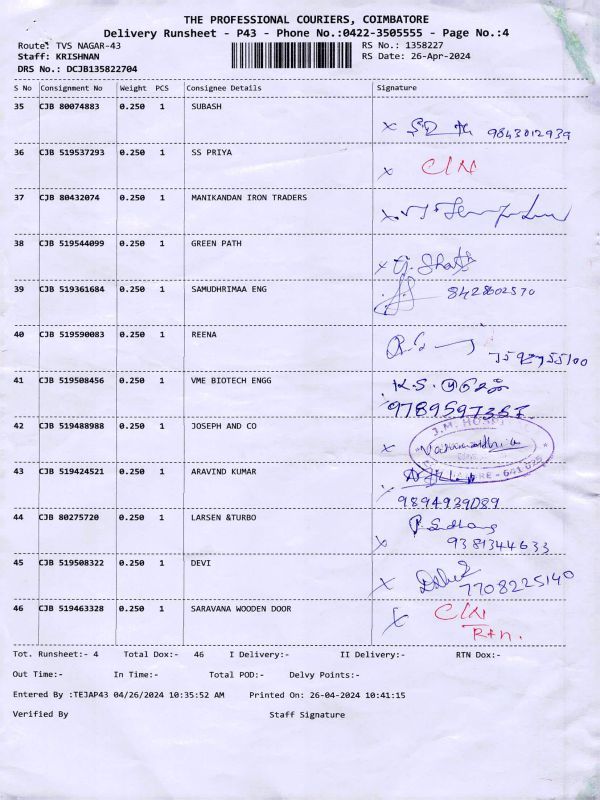 THE PROFESSIONAL COURIERS, COIMBATORE
Delivery Runsheet - P43 - Phone No.:0422-3505555 - Page No.:4
Route: TVS NAGAR-43 RS No.: 1358227
Staff: KRISHNAN RS Date: 26-Apr-2024
DRS No.: DCJB135822704
S No Consignment No Weight PCS Consignee Details Signature
35 CJB 80074883 0.250 1 SUBASH
x 9843012939
36 CJB 519537293 0.250 1 SS PRIYA
x C/N
37 CJB 80432074 0.250 1 MANIKANDAN IRON TRADERS
x
38 CJB 519544099 0.250 1 GREEN PATH
x
39 CJB 519361684 0.250 1 SAMUDHRIMAA ENG
8428602570
40 CJB 519590083 0.250 1 REENA
41 CJB 519508456 0.250 1 VME BIOTECH ENGG
K.S.
42 CJB 519488988 0.250 1 JOSEPH AND CO
x
J.M. HOSPI
RE - 641 025
43 CJB 519424521 0.250 1 ARAVIND KUMAR
9894939089
44 CJB 80275720 0.250 1 LARSEN &TURBO
x 9381344633
45 CJB 519508322 0.250 1 DEVI
x 7708225140
46 CJB 519463328 0.250 1 SARAVANA WOODEN DOOR
x C/N
Rtn.
Tot. Runsheet:- 4 Total Dox:- 46 I Delivery:- II Delivery:- RTN Dox:-
Out Time:- In Time:- Total POD:- Delvy Points:-
Entered By :TEJAP43 04/26/2024 10:35:52 AM Printed On: 26-04-2024 10:41:15
Verified By Staff Signature